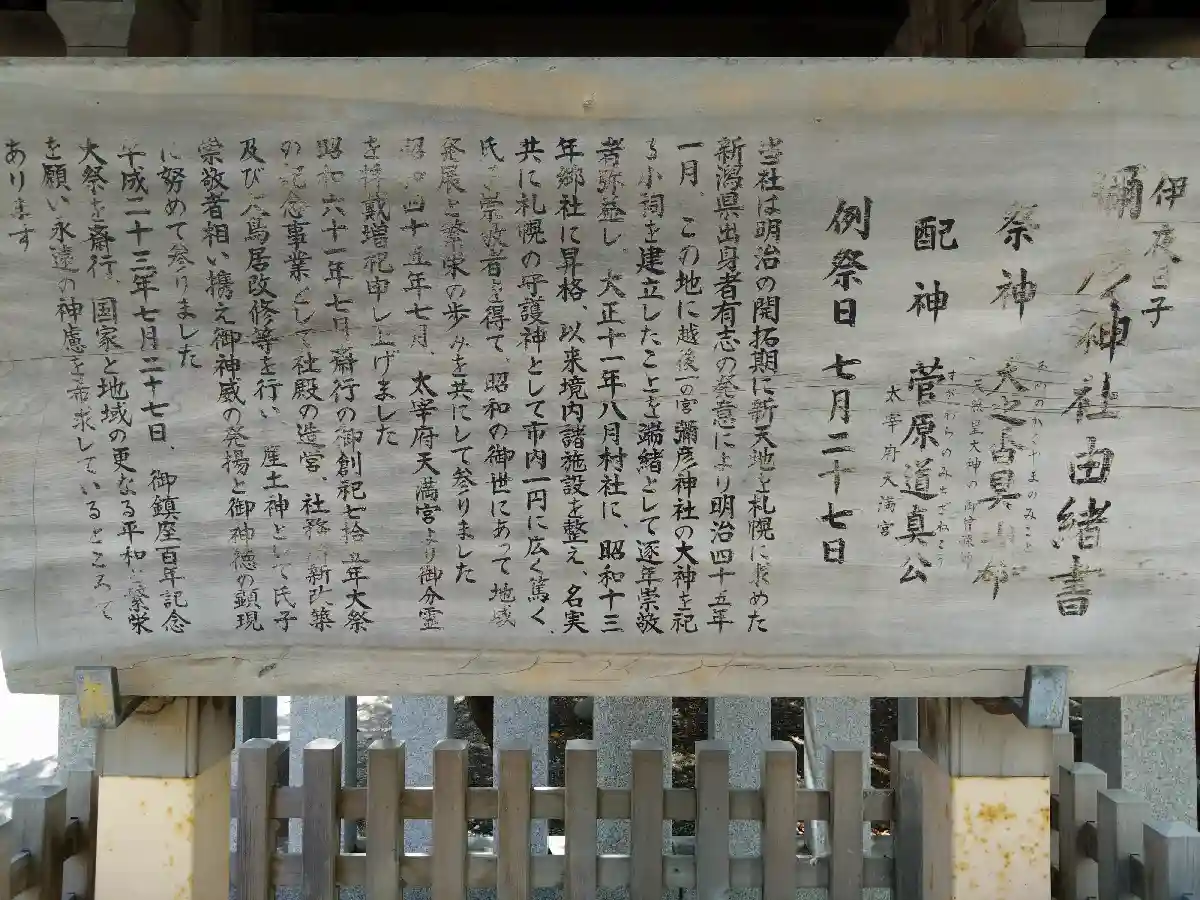 伊夜日子
彌彦神社由緒書
祭神 天之香具山命
あめのかぐやまのみこと
配神 菅原道真公
すがわらのみちざねこう
太宰府天満宮
例祭日 七月二十七日
当社は明治の開拓期に新天地を札幌に求めた
新潟県出身者有志の発意により明治四十五年
一月、この地に越後一の宮彌彦神社の大神を祀
る小祠を建立したことを端緒として逐年崇敬
者弥益し、大正十一年八月村社に、昭和十三
年郷社に昇格、以来境内諸施設を整え、名実
共に札幌の守護神として市内一円に広く篤く
氏子崇敬者を得て、昭和の御世にあって地域
発展と繁栄の歩みを共にして参りました
昭和四十五年七月、太宰府天満宮より御分霊
を拝戴増祀申し上げました
昭和六十一年七月斎行の御創祀七拾五年大祭
の記念事業として社殿の造営、社務所新改築
及び大鳥居改修等を行い、産土神として氏子
崇敬者相い携え御神威の発揚と御神徳の顕現
に努めて参りました
平成二十三年七月二十七日、御鎮座百年記念
大祭を斎行、国家と地域の更なる平和と繁栄
を願い永遠の神慮を希求しているところで
あります